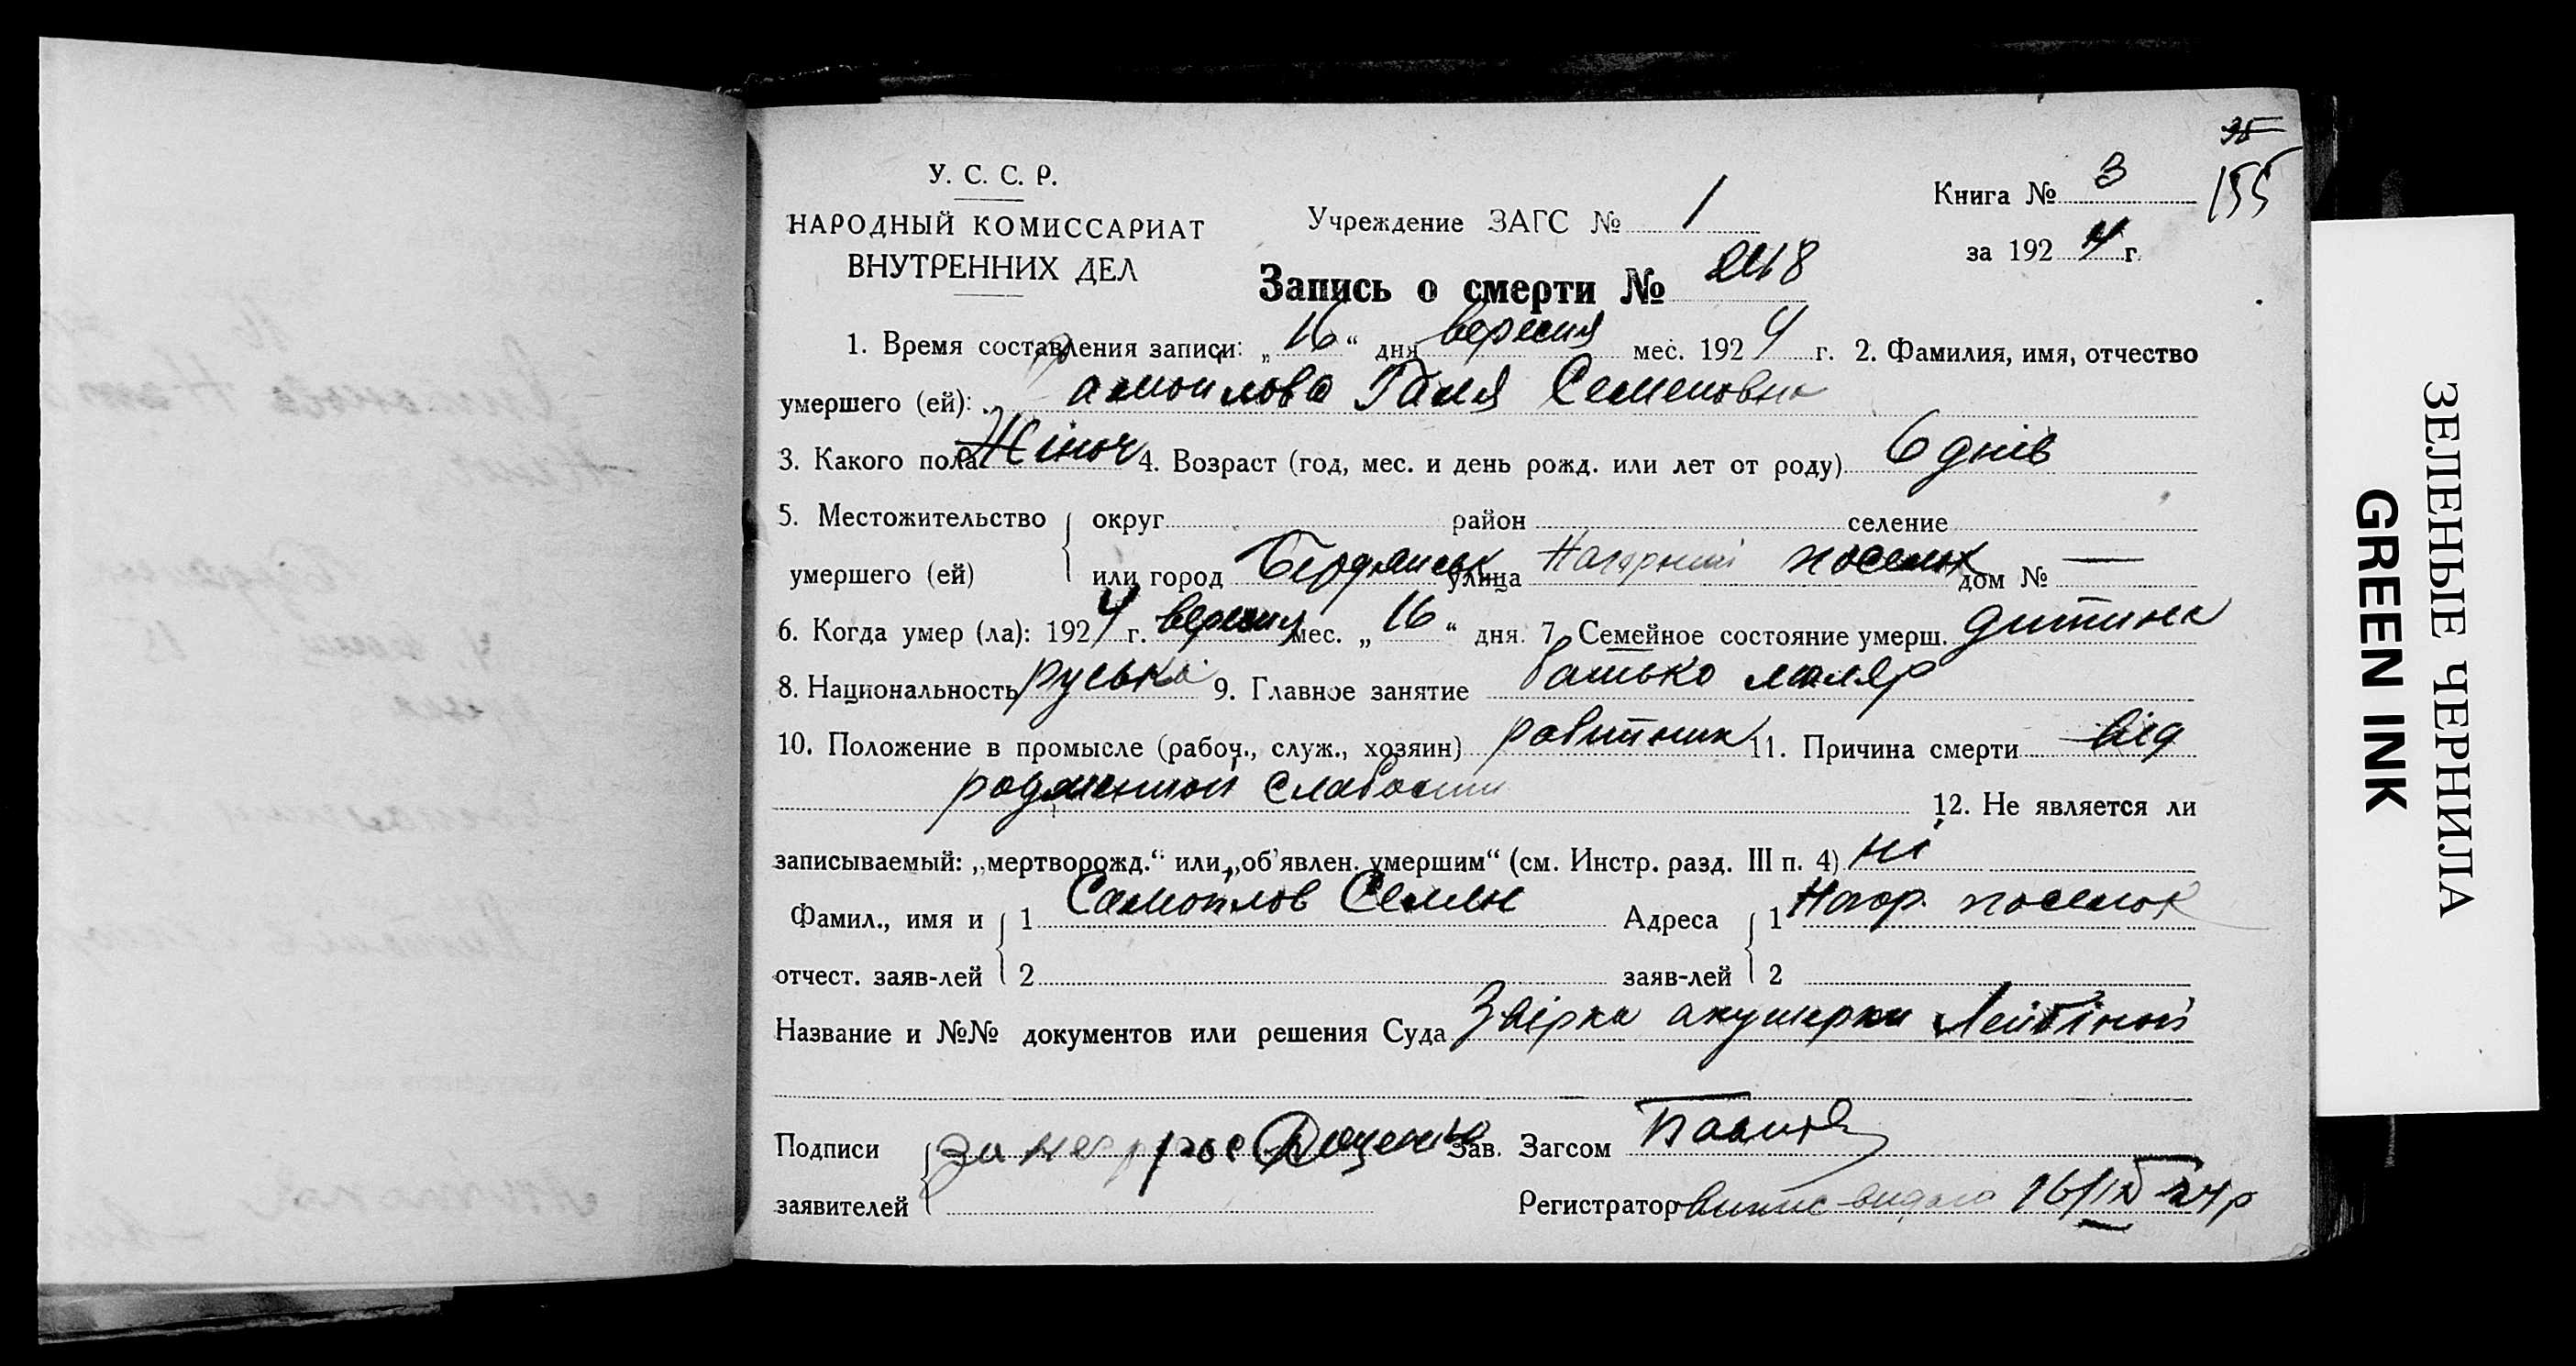 35
155
У. С. С. Р.
НАРОДНЫЙ КОМИССАРИАТ
ВНУТРЕННИХ ДЕЛ
Учреждение ЗАГС № 1
Книга № 3
за 1924 г.
Запись о смерти № 248
1. Время составления записи: „16“ дня вересня мес. 1924 г. 2. Фамилия, имя, отчество
умершего (ей): Самоилова Галя Семеновна
3. Какого пола Жіноч 4. Возраст (год, мес. и день рожд. или лет от роду) 6 днів
5. Местожительство округ район селение
умершего (ей) или город Бердянськ улица Нагорний поселок дом № —
6. Когда умер (ла): 1924 г. вересня мес. „16“ дня. 7. Семейное состояние умерш. дитина
8. Национальность руська 9. Главное занятие батько маляр
10. Положение в промысле (рабоч., служ., хозяин) робитник 11. Причина смерти від
родженной слабости
12. Не является ли
записываемый: „мертворожд.“ или „об’явлен. умершим“ (см. Инстр. разд. III п. 4) ні
Фамил., имя и 1 Самоилов Семен Адреса 1 Нагор. поселок
отчест. заяв-лей 2 заяв-лей 2
Название и №№ документов или решения Суда Звірка акушерки
Подписи за Доценко Зав. Загсом
заявителей Регистратор випис видано 16/IX 24 р
ЗЕЛЕНЫЕ ЧЕРНИЛА
GREEN INK